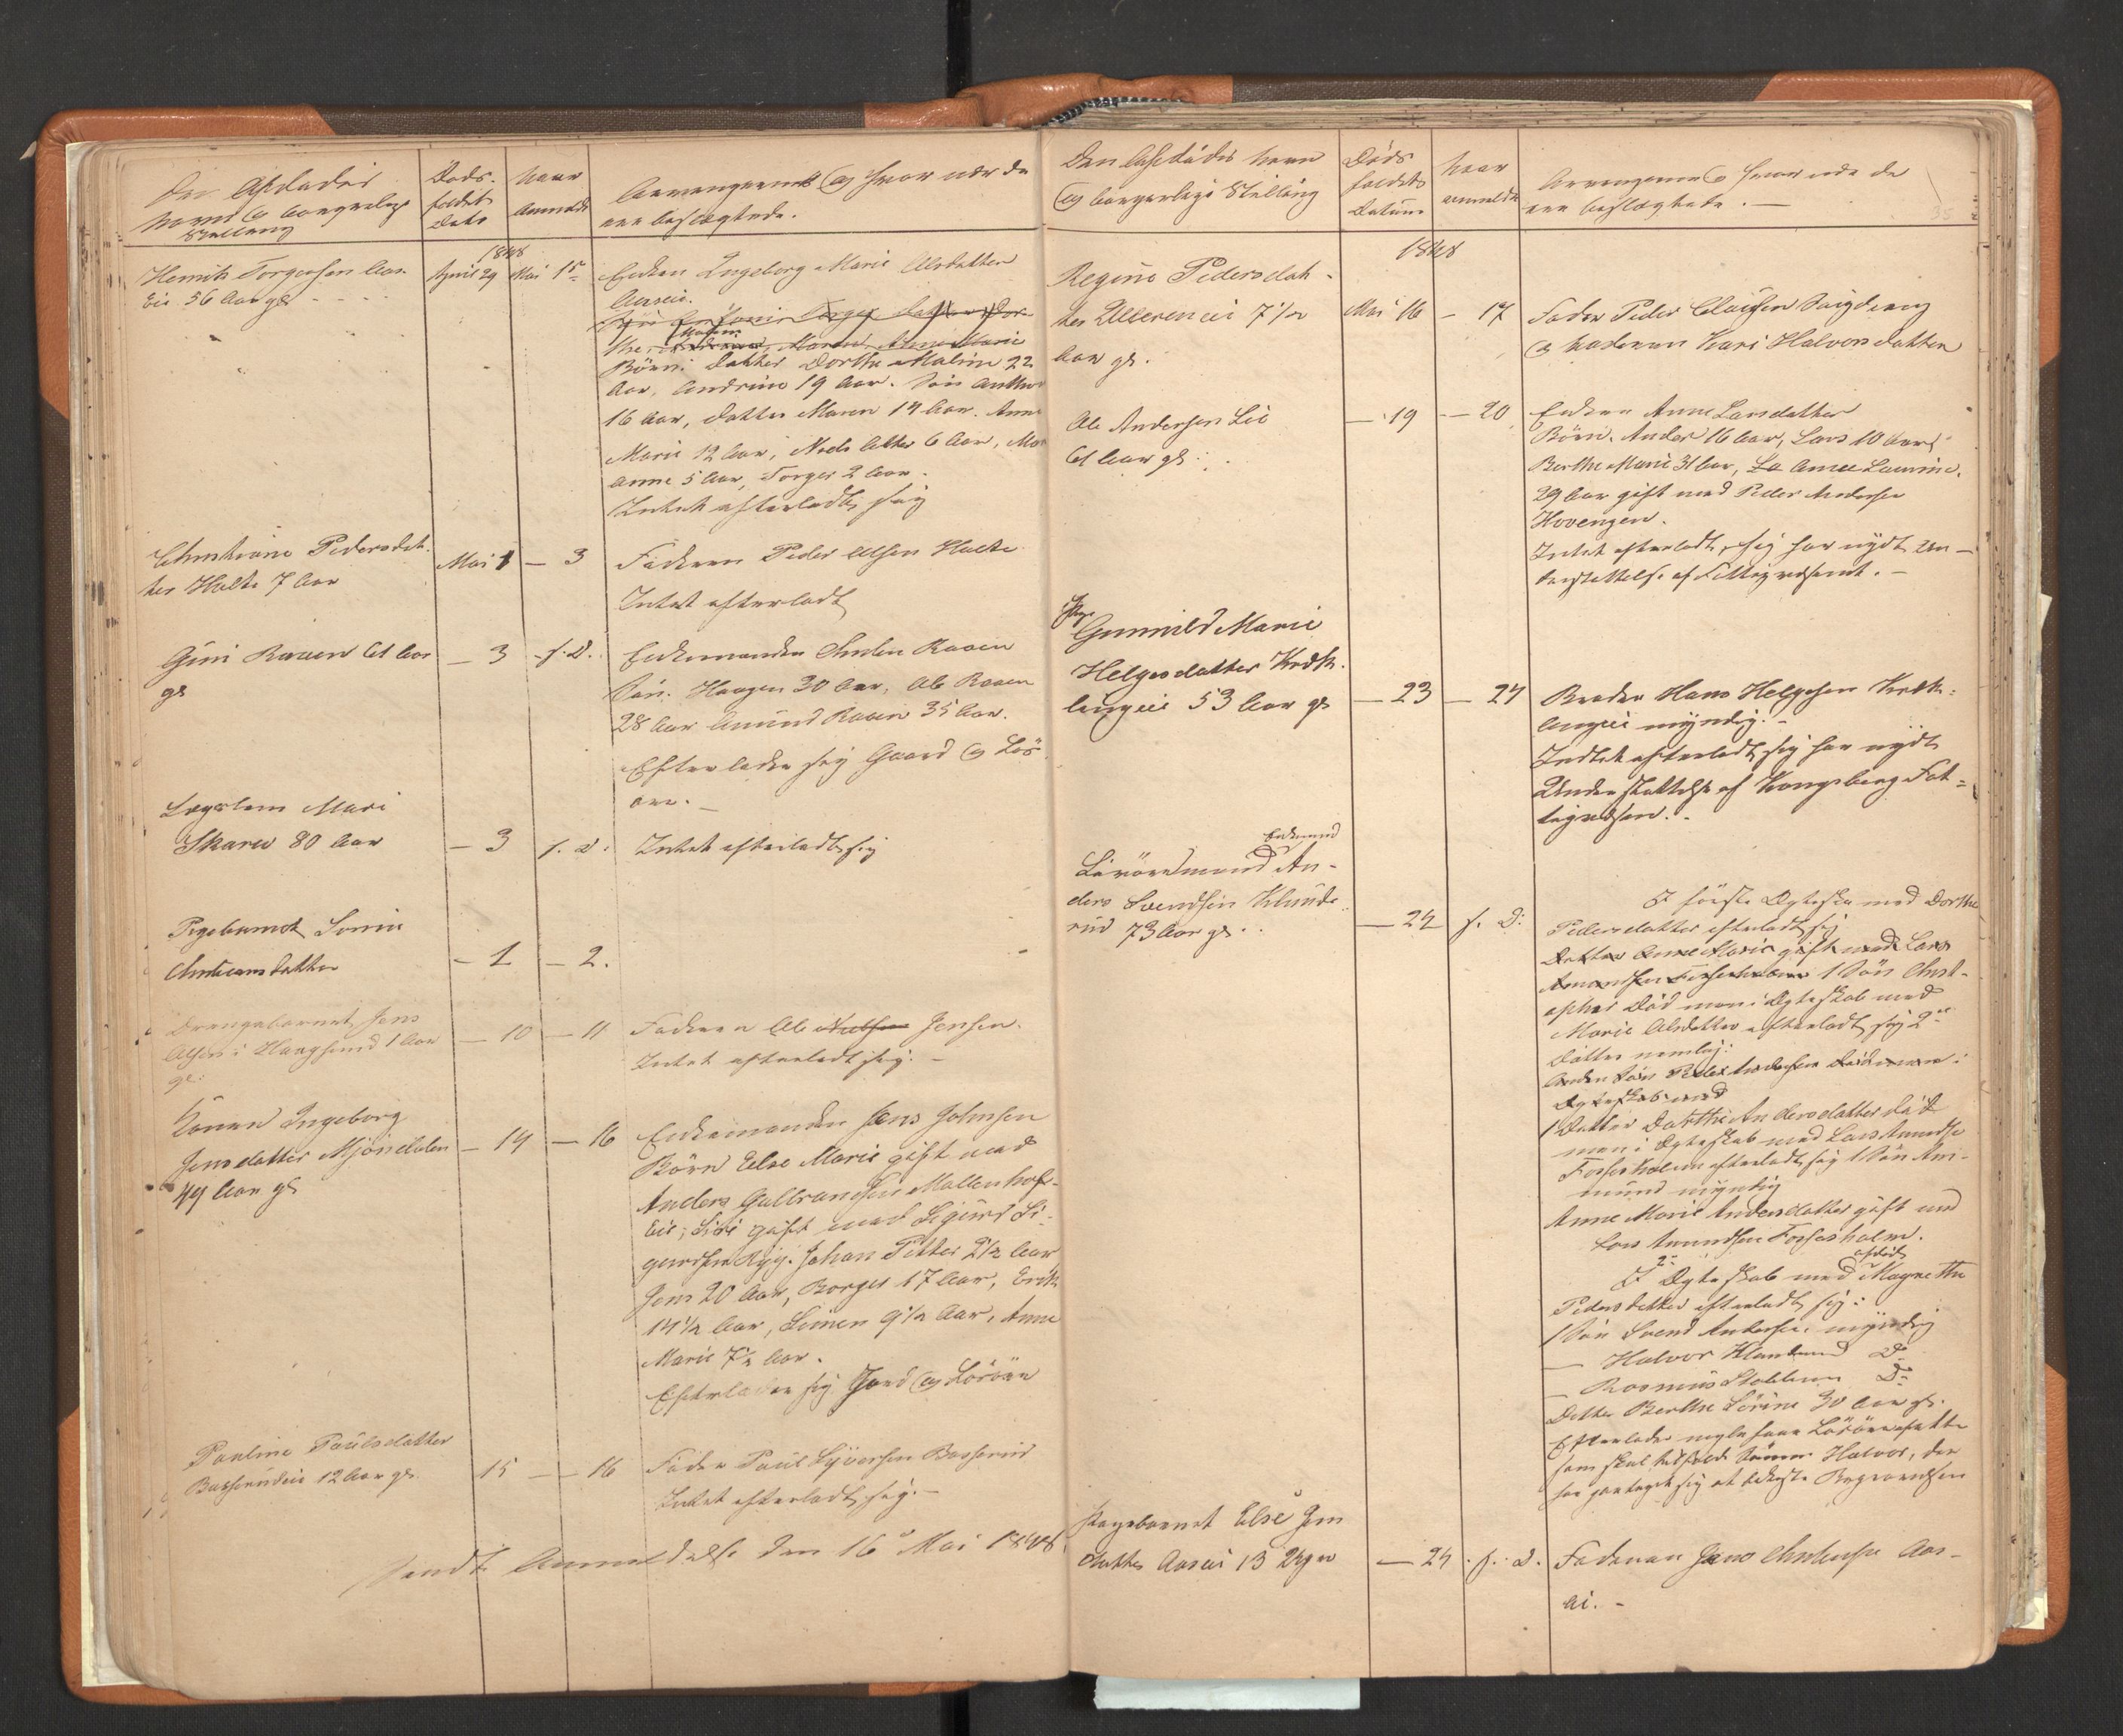 Den Afdødes
Navn & borgerlige
Stilling
Døds-
faldets
Dato
Naar
Anmeldt
Arvingerne & hvor nær de
ere beslægtede.
1848
Henrik Torgersen Aas-
Eie 56 Aar gl
April 29
Mai 1
Enken Ingeborg Marie Olsdatter
Aaseie.
Maline
Børn: Datter Dorthe Maline 22
Aar, Andrine 19 Aar. Søn Anthon
16 Aar, Datter Maren 14 Aar. Anne
Marie 12 Aar, Niels 6 Aar,
Anne 5 Aar, Torger 2 Aar.
Intet efterladt sig
Christiane Pedersdat-
ter Holte 7 Aar
Mai 1
— 3
Faderen Peder Olsen Holte
Intet efterladt
Guri Raaen 61 Aar
gl
— 3
- s. D.
Enkemanden Raaen
Søn. Haagen 30 Aar, Ole Raaen
28 Aar Amund Raaen 35 Aar.
Efterlader sig Gaard & Løs-
øre.
Lægslem Mari
Skaren 80 Aar
— 3
s. D.
Intet efterladt sig
Pigebarnet
Christiansdatter
— 1
— 2.
Drengebarnet Jens
Olsen i Haugsund 1 Aar
gl.
— 10
— 11
Faderen Ole Jensen.
Intet efterladt sig. —
Konen Ingeborg
Jensdatter Mjøndalen
49 Aar gl
— 14
— 16
Enkemanden Jens Johnsen
Børn Else Marie gift med
Anders Gulbrandsen Mollenhof-
Eie; Siri gift med Sigurd Si-
gurdsen Ryg. Johan Petter 2½ Aar
Jens 20 Aar, Borger 17 Aar, Erik
14½ Aar, Simen 9½ Aar, Anne
Marie 7½ Aar.
Efterlader sig Jord & Løsøre
Pauline Paulsdatter
Basserudeie 12 Aar gl.
15 —
— 16
Fader Paul Syversen Basserud
Intet efterladt sig. —
Sendt Anmeldelse den 16de Mai 1848.
Den Afdødes Navn
& borgerlige Stilling
Døds
faldets
Datum
Naar
anmeldt
Arvingerne & hvor nær de
ere beslægtede. —
35
1848
Regine Pedersdat-
ter Ullereneie 7½
Aar gl.
Mai 16
— 17
Fader Peder Clausen
& Moderen Kari Halvorsdatter
Ole Andersen Lie
61 Aar gl.
— 19
— 20
Enken Anne Larsdatter
Børn. Anders 16 Aar, Lars 10 Aar,
Berthe Marie 31 Aar, Anne Laurine.
29 Aar gift med Peder Andersen
Hovengen.
Intet efterladt sig har nydt Un-
derstøttelse af Fattigvæsenet. —
Pige
Gunnild Marie
Helgesdatter Kræk-
lingeie 53 Aar gl
— 23
— 24
Broder Hans Helgesen Kræk-
lingeie myndig. -
Intet efterladt sig har nydt
Understøttelse af Kongsberg Fat-
tigvæsen. .
Enkemand
Livøresmand An-
ders Svendsen Klunde-
rud 73 Aar gl. .
— 24
s. D:
I første Ægteskab med Dorthe
Pedersdatter efterladt sig
Datter Anne Marie gift med Lars
Amundsen Fossesholm 1 Søn Christ-
opher Død men i Ægteskab med
Marie Olsdatter efterladt sig 2de
Døttre nemlig:
Anden Søn Peder Andersen Død men i
Ægteskab med
1 Datter Dorthe Andersdatter død
men i Ægteskab med Lars Amundsen
Fossesholm efterladt sig 1 Søn Am-
mund myndig
Anne Marie Andersdatter gift med
Lars Amundsen Fossesholm.
I 2det Ægteskab med afdøde Magrethe
Pedersdatter efterladt sig:
1 Søn Svend Andersen myndig
— Halvor Klunderud Do
— Rasmus Stabben Do
Datter Berthe Sørine 30 Aar gl.
Efterlader nogle faae Løsøreeffecter
som skal tilfalde Sønnen Halvor, der
har paataget sig at bekoste Begravelsen
Pigebarnet Else Jens
datter Aaseie 13 Uger
— 24
s. D.
Faderen Jens Christensen Aas-
ei. -